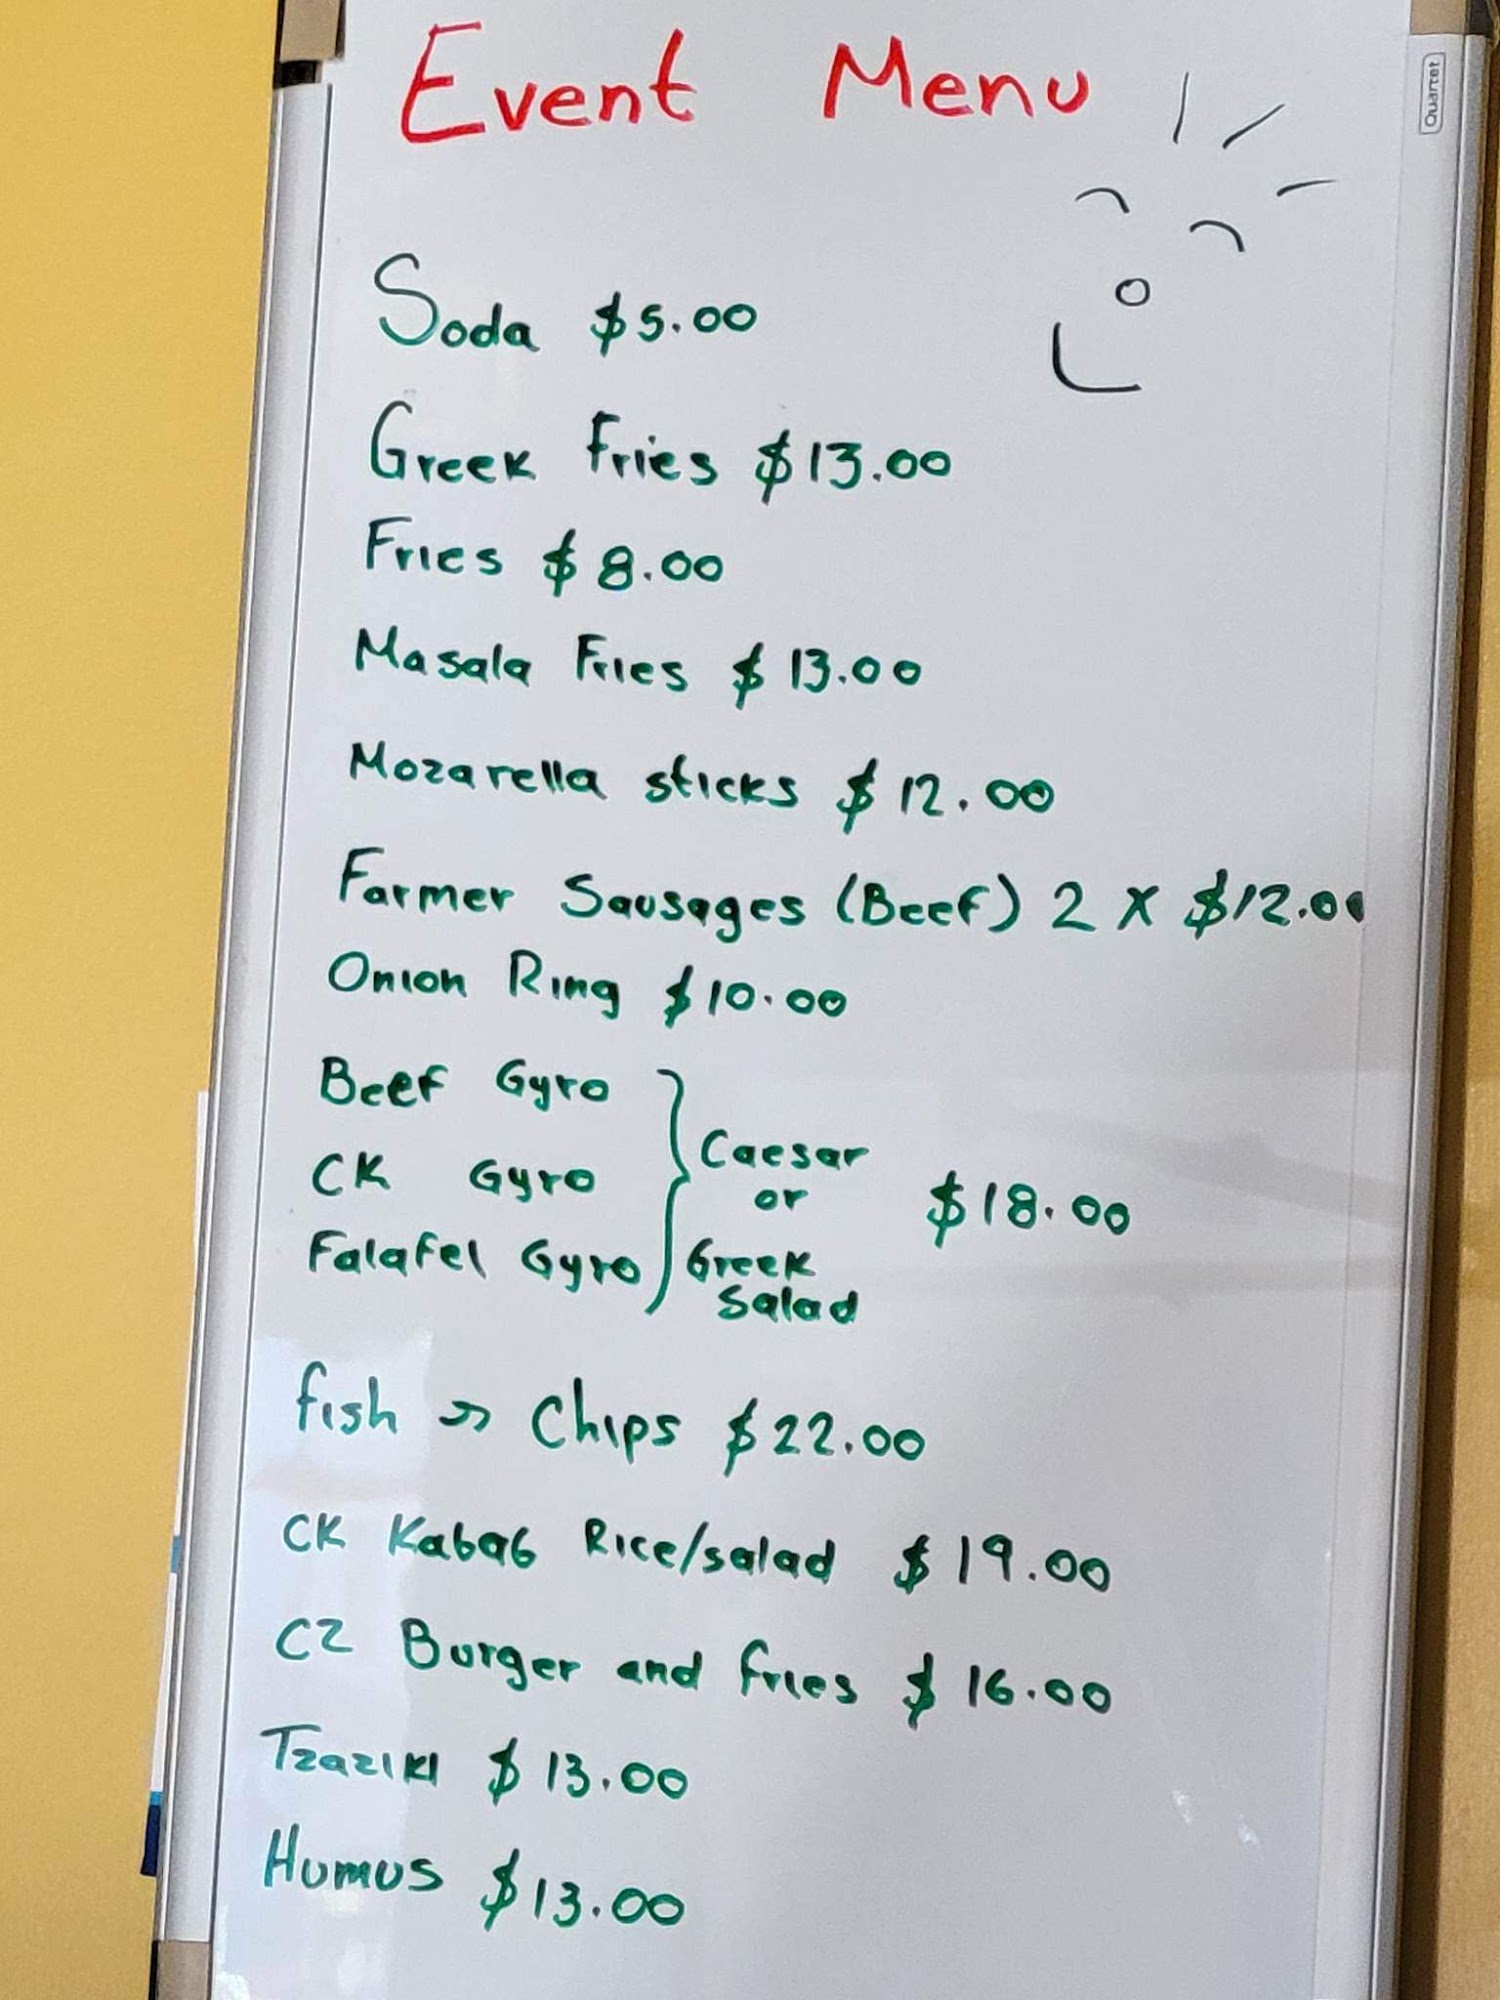 Event Menu
Quartet
Soda $5.00
Greek Fries $13.00
Fries $8.00
Masala Fries $13.00
Mozarella sticks $12.00
Farmer Sausages (Beef) 2 x $12.00
Onion Ring $10.00
Beef Gyro
CK Gyro
Falafel Gyro
Caesar
or
Greek
Salad
$18.00
fish n Chips $22.00
CK Kabab Rice/salad $19.00
CZ Burger and fries $16.00
Tzaziki $13.00
Humus $13.00